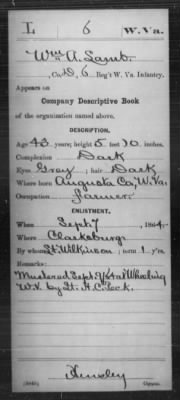 L 6 W. Va.
Wm A. Lamb.
Co. D, 6 Reg't W. Va. Infantry.
Appears on
Company Descriptive Book
of the organization named above.
DESCRIPTION.
Age 43 years; height 5 feet 10 inches.
Complexion Dark
Eyes Gray; hair Dark
Where born Augusta Co., W. Va.
Occupation Farmer.
ENLISTMENT.
When Sept. 7, 1864.
Where Clarksburg.
By whom Lt. Wilkinson; term 1 y'rs.
Remarks:
Mustered Sept. 7/64 at Wheeling
W.V. by Lt. H. C. Peck.
Copyist.